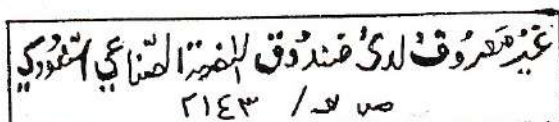 غير معروف لدى صندوق التنمية الصناعي السعودي
ص ب / ٢١٤٣